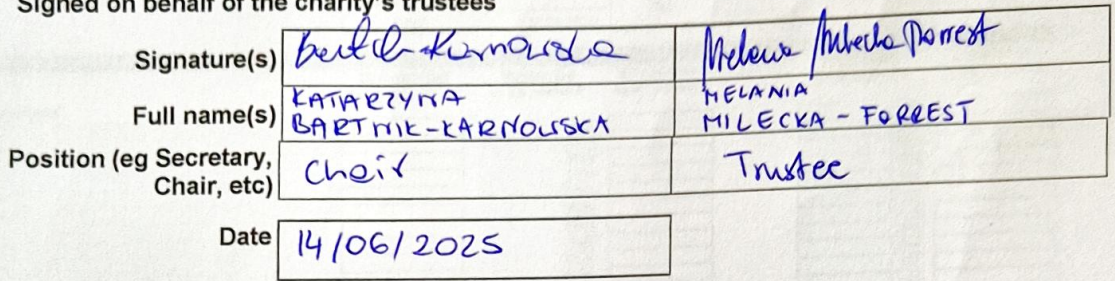 Signed on behalf of the charity's trustees
Signature(s) Melania Milecka Forrest
Full name(s) KATARZYNA BARTNIK-KARNOWSKA MELANIA MILECKA - FORREST
Position (eg Secretary, Chair, etc) Chair Trustee
Date 14/06/2025